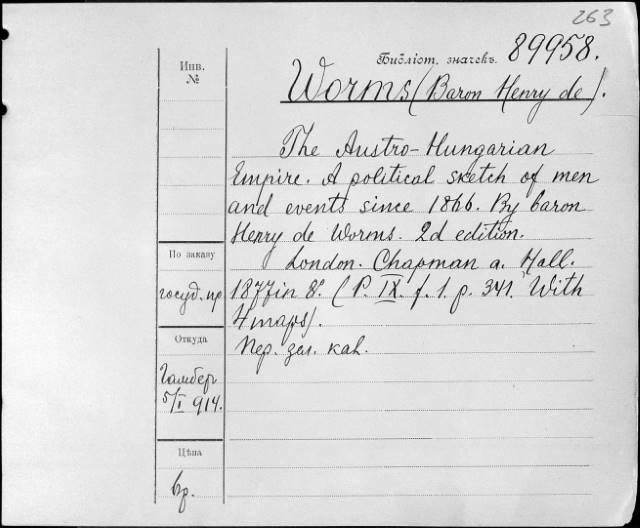 263
Библіот. значекъ. 89958.
Инв.
№
Worms (Baron Henry de).
The Austro-Hungarian
Empire. A political sketch of men
and events since 1866. By baron
Henry de Worms. 2d edition.
London. Chapman a. Hall.
1877 in 8º. (P. IX. f. 1. p. 341. With
4 maps).
Пер. зел. кал.
По заказу
госуд. пр
Откуда
Гамбер
5/I 914.
Цѣна
бр.